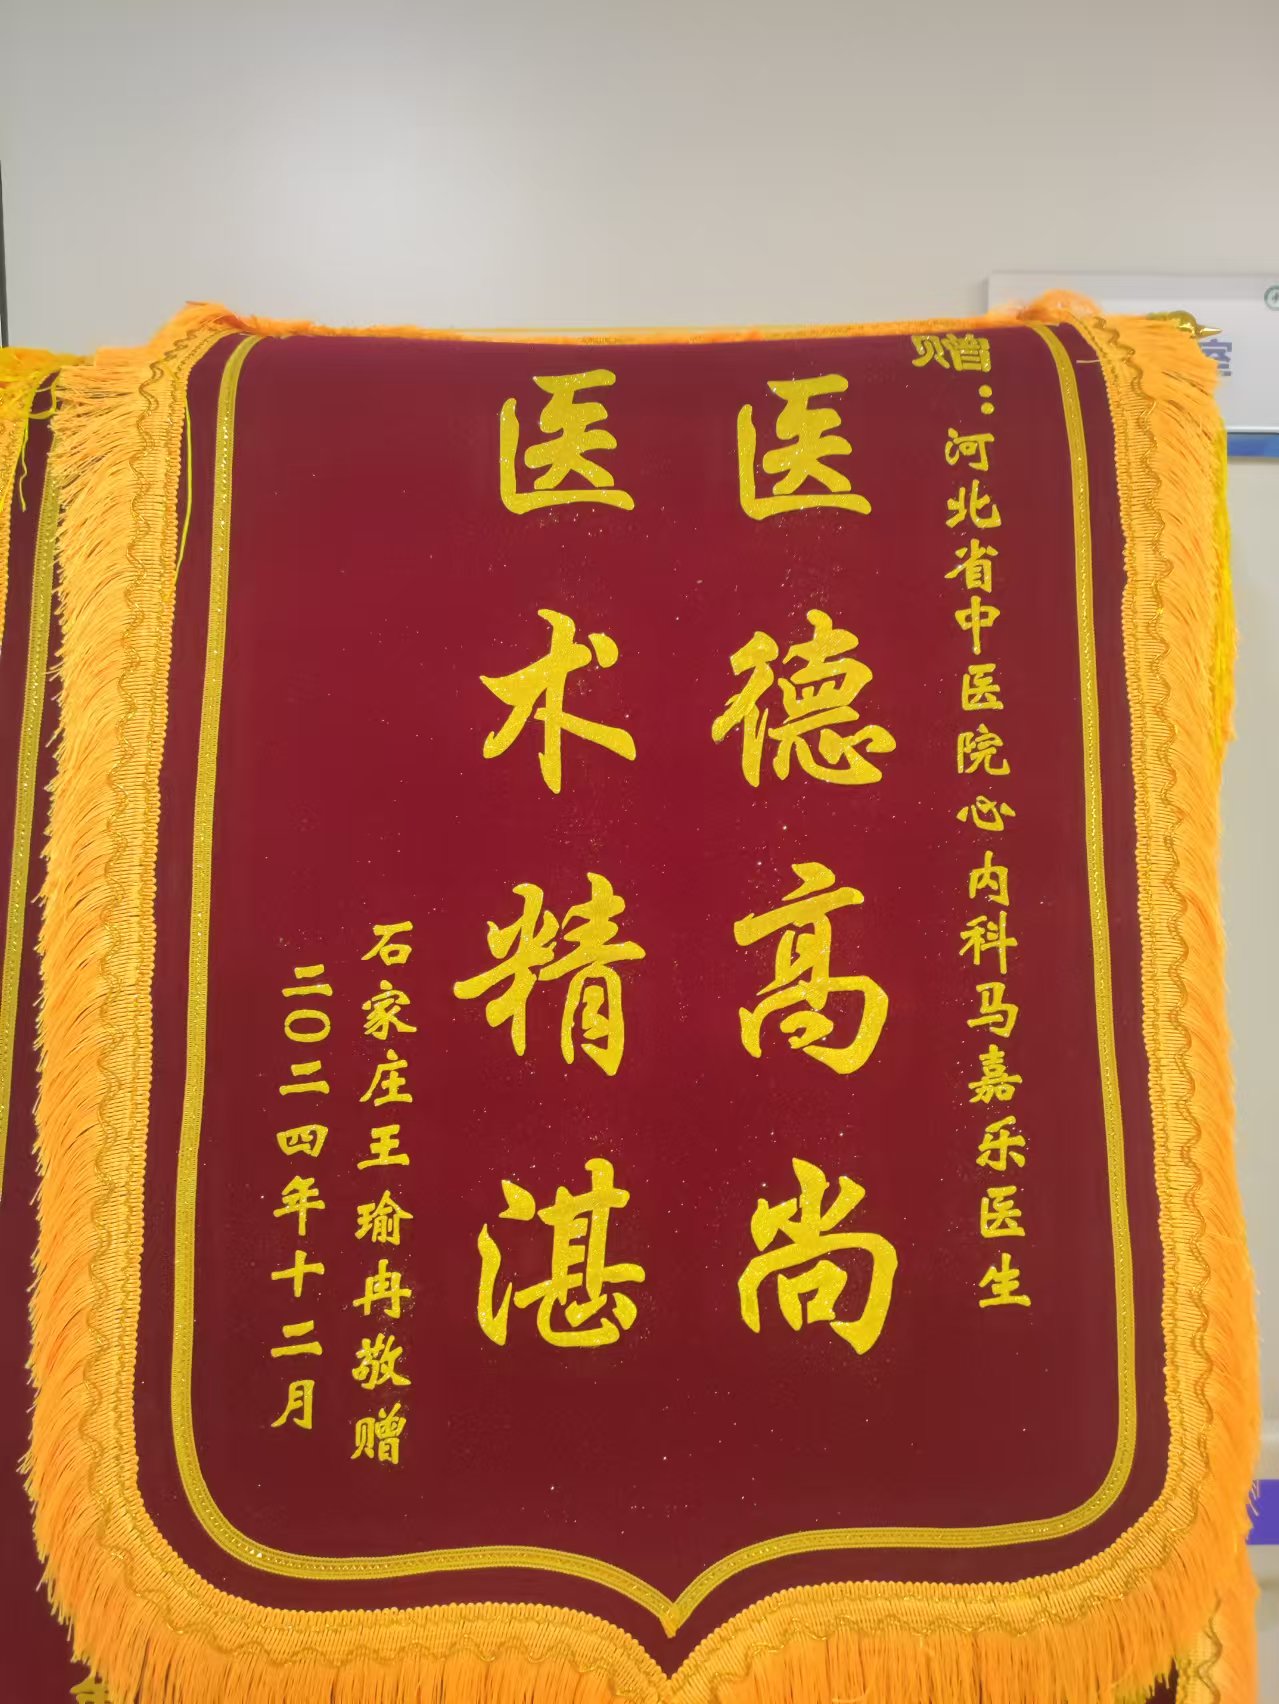 赠：河北省中医院心内科马嘉乐医生
医德高尚
医术精湛
石家庄王瑜冉敬赠
二〇二四年十二月
室